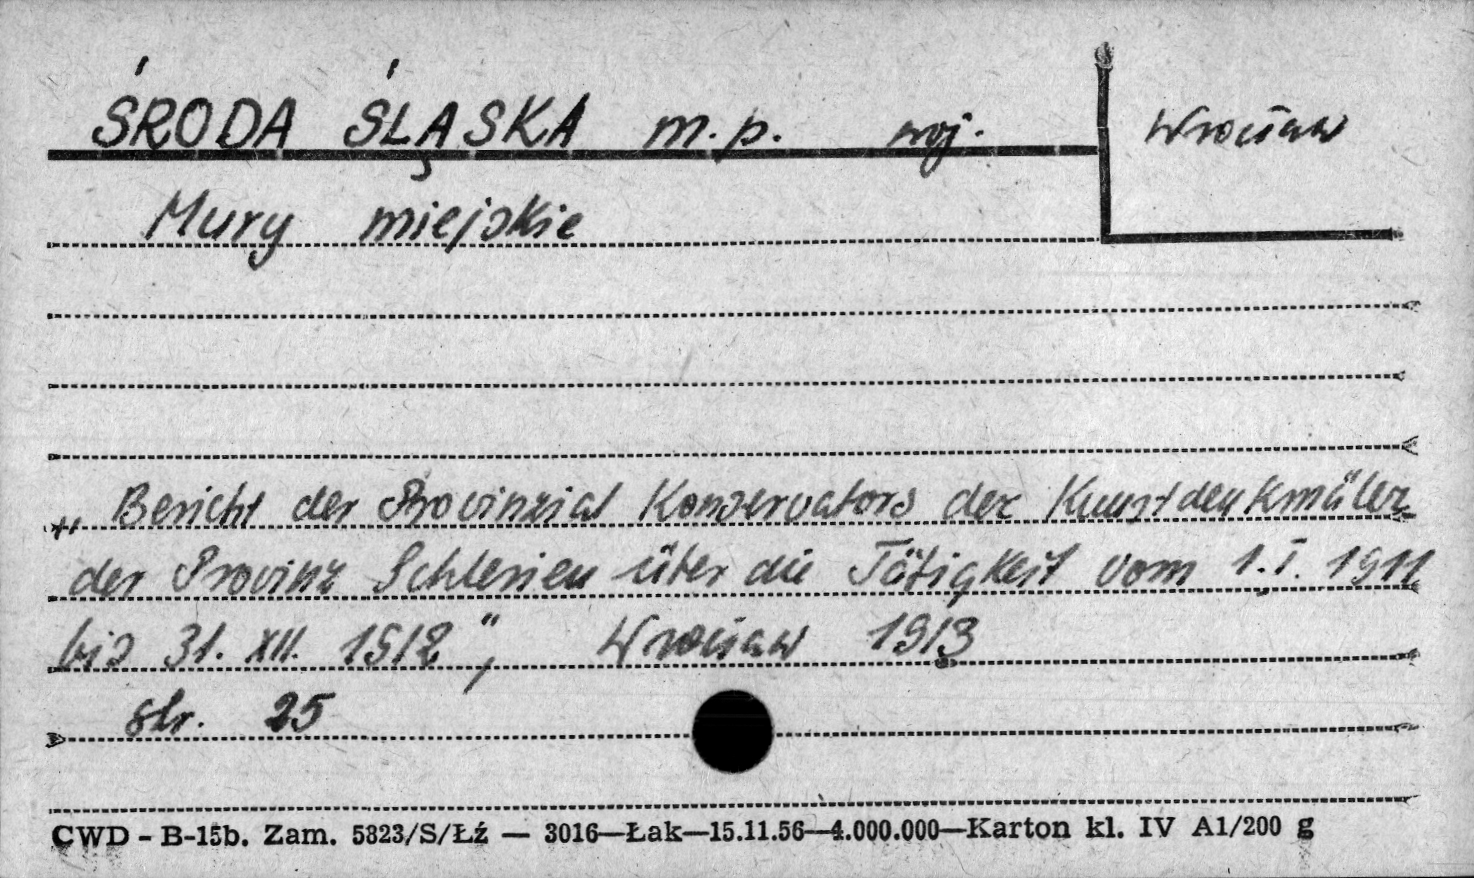 ŚRODA ŚLĄSKA m.p. woj. Wrocław
Mury miejskie
„Bericht der Provinzial Konservators der Kunstdenkmäler
der Provinz Schlesien über die Tätigkeit vom 1.I. 1911
bis 31. XII. 1912", Wrocław 1913
str. 25
CWD - B-15b. Zam. 5823/S/Łź — 3016—Łak—15.11.56—4.000.000—Karton kl. IV A1/200 g